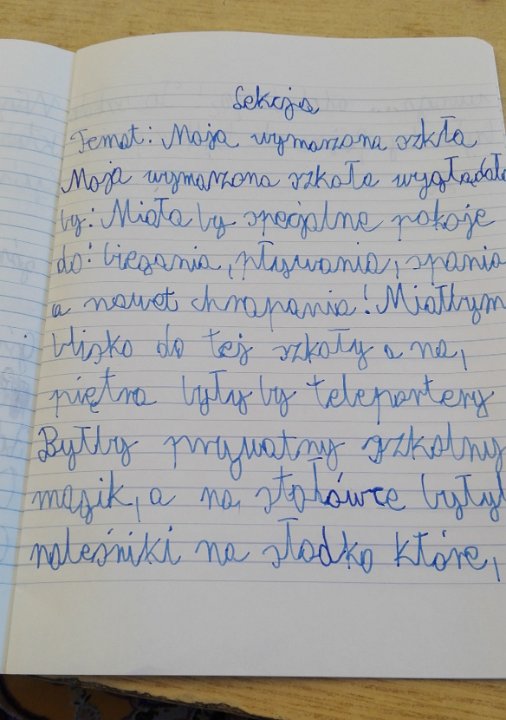 Lekcja
Temat: Moja wymarzona szkła
Moja wymarzona szkoła wyglądała
by: Miała by specjalne pokoje
do: biegania, pływania, spania
a nawet chrapania! Miałbym
blisko do tej szkoły a na,
piętra były by teleportery
Byłby prywatny szkolny
magik, a na stołówce byłyb
naleśniki na słodko które,